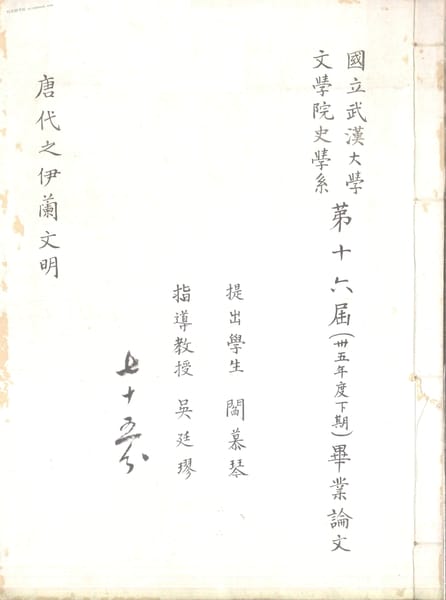 國立武漢大學
文學院史學系
第十六屆(卅五年度下期)畢業論文
提出學生 閻慕琴
指導教授 吳廷璆
七十五分
唐代之伊蘭文明